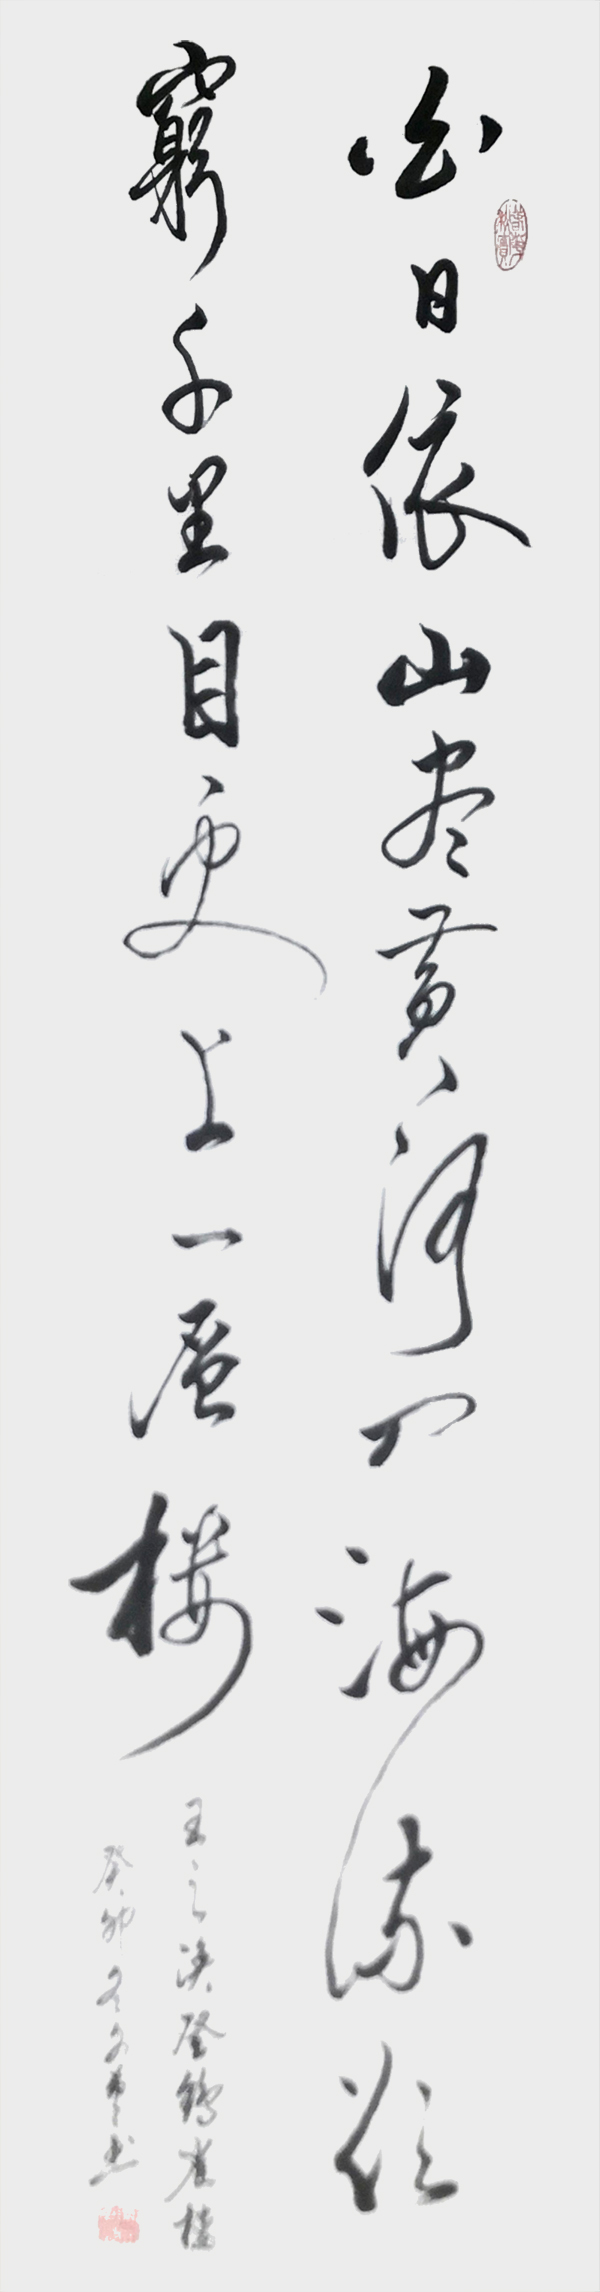 白日依山尽黄河入海流欲
窮千里目更上一层楼
王之涣登鹳雀楼
癸卯冬文
书